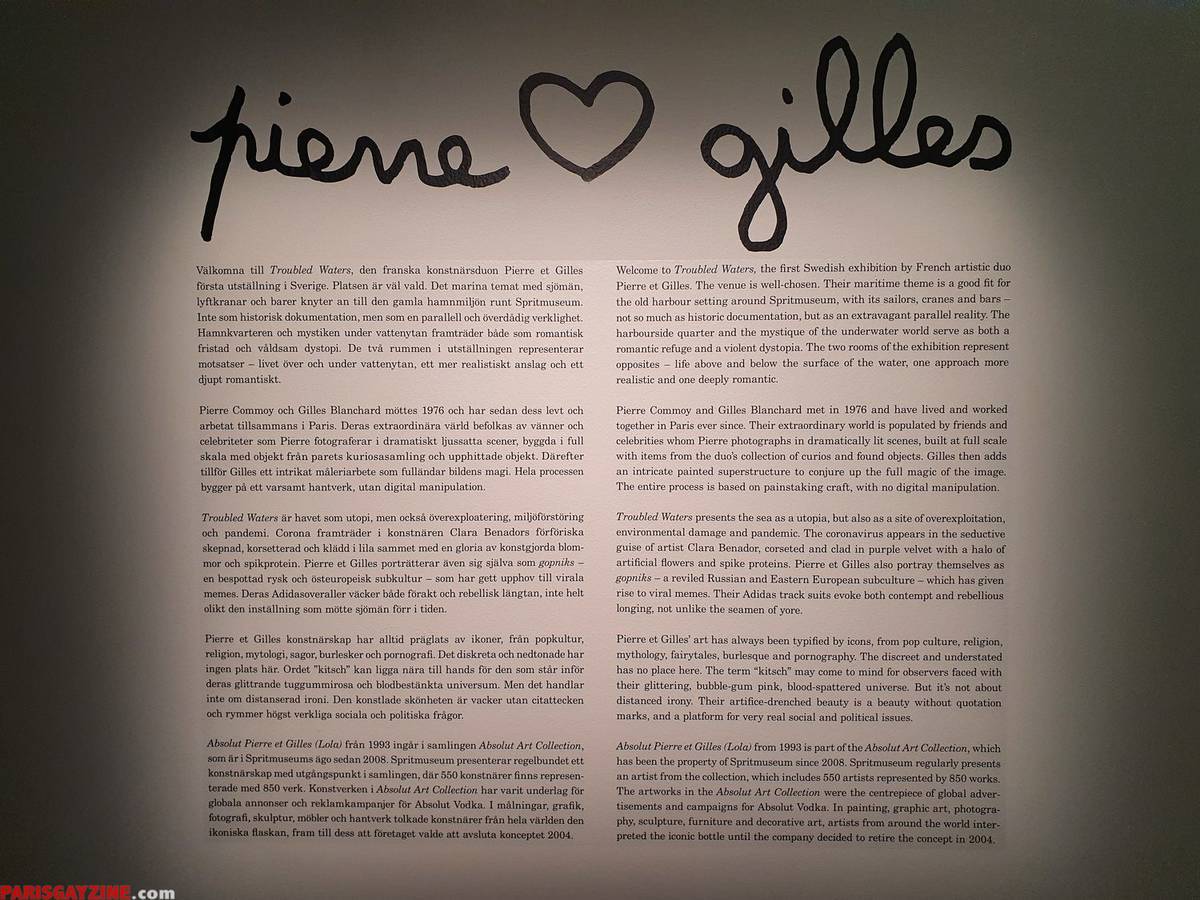 pierre ♡ gilles
Välkomna till Troubled Waters, den franska konstnärsduon Pierre et Gilles
första utställning i Sverige. Platsen är väl vald. Det marina temat med sjömän,
lyftkranar och barer knyter an till den gamla hamnmiljön runt Spritmuseum.
Inte som historisk dokumentation, men som en parallell och överdådig verklighet.
Hamnkvarteren och mystiken under vattenytan framträder både som romantisk
fristad och våldsam dystopi. De två rummen i utställningen representerar
motsatser – livet över och under vattenytan, ett mer realistiskt anslag och ett
djupt romantiskt.
Pierre Commoy och Gilles Blanchard möttes 1976 och har sedan dess levt och
arbetat tillsammans i Paris. Deras extraordinära värld befolkas av vänner och
celebriteter som Pierre fotograferar i dramatiskt ljussatta scener, byggda i full
skala med objekt från parets kuriosasamling och upphittade objekt. Därefter
tillför Gilles ett intrikat måleriarbete som fulländar bildens magi. Hela processen
bygger på ett varsamt hantverk, utan digital manipulation.
Troubled Waters är havet som utopi, men också överexploatering, miljöförstöring
och pandemi. Corona framträder i konstnären Clara Benadors förföriska
skepnad, korsetterad och klädd i lila sammet med en gloria av konstgjorda blom-
mor och spikprotein. Pierre et Gilles porträtterar även sig själva som gopniks –
en bespottad rysk och östeuropeisk subkultur – som har gett upphov till virala
memes. Deras Adidasoveraller väcker både förakt och rebellisk längtan, inte helt
olikt den inställning som mötte sjömän förr i tiden.
Pierre et Gilles konstnärskap har alltid präglats av ikoner, från popkultur,
religion, mytologi, sagor, burlesker och pornografi. Det diskreta och nedtonade har
ingen plats här. Ordet ”kitsch” kan ligga nära till hands för den som står inför
deras glittrande tuggummirosa och blodbestänkta universum. Men det handlar
inte om distanserad ironi. Den konstlade skönheten är vacker utan citattecken
och rymmer högst verkliga sociala och politiska frågor.
Absolut Pierre et Gilles (Lola) från 1993 ingår i samlingen Absolut Art Collection,
som är i Spritmuseums ägo sedan 2008. Spritmuseum presenterar regelbundet ett
konstnärskap med utgångspunkt i samlingen, där 550 konstnärer finns represen-
terade med 850 verk. Konstverken i Absolut Art Collection har varit underlag för
globala annonser och reklamkampanjer för Absolut Vodka. I målningar, grafik,
fotografi, skulptur, möbler och hantverk tolkade konstnärer från hela världen den
ikoniska flaskan, fram till dess att företaget valde att avsluta konceptet 2004.
Welcome to Troubled Waters, the first Swedish exhibition by French artistic duo
Pierre et Gilles. The venue is well-chosen. Their maritime theme is a good fit for
the old harbour setting around Spritmuseum, with its sailors, cranes and bars –
not so much as historic documentation, but as an extravagant parallel reality. The
harbourside quarter and the mystique of the underwater world serve as both a
romantic refuge and a violent dystopia. The two rooms of the exhibition represent
opposites – life above and below the surface of the water, one approach more
realistic and one deeply romantic.
Pierre Commoy and Gilles Blanchard met in 1976 and have lived and worked
together in Paris ever since. Their extraordinary world is populated by friends and
celebrities whom Pierre photographs in dramatically lit scenes, built at full scale
with items from the duo’s collection of curios and found objects. Gilles then adds
an intricate painted superstructure to conjure up the full magic of the image.
The entire process is based on painstaking craft, with no digital manipulation.
Troubled Waters presents the sea as a utopia, but also as a site of overexploitation,
environmental damage and pandemic. The coronavirus appears in the seductive
guise of artist Clara Benador, corseted and clad in purple velvet with a halo of
artificial flowers and spike proteins. Pierre et Gilles also portray themselves as
gopniks – a reviled Russian and Eastern European subculture – which has given
rise to viral memes. Their Adidas track suits evoke both contempt and rebellious
longing, not unlike the seamen of yore.
Pierre et Gilles’ art has always been typified by icons, from pop culture, religion,
mythology, fairytales, burlesque and pornography. The discreet and understated
has no place here. The term “kitsch” may come to mind for observers faced with
their glittering, bubble-gum pink, blood-spattered universe. But it’s not about
distanced irony. Their artifice-drenched beauty is a beauty without quotation
marks, and a platform for very real social and political issues.
Absolut Pierre et Gilles (Lola) from 1993 is part of the Absolut Art Collection, which
has been the property of Spritmuseum since 2008. Spritmuseum regularly presents
an artist from the collection, which includes 550 artists represented by 850 works.
The artworks in the Absolut Art Collection were the centrepiece of global adver-
tisements and campaigns for Absolut Vodka. In painting, graphic art, photogra-
phy, sculpture, furniture and decorative art, artists from around the world inter-
preted the iconic bottle until the company decided to retire the concept in 2004.
PARISGAYZINE.com